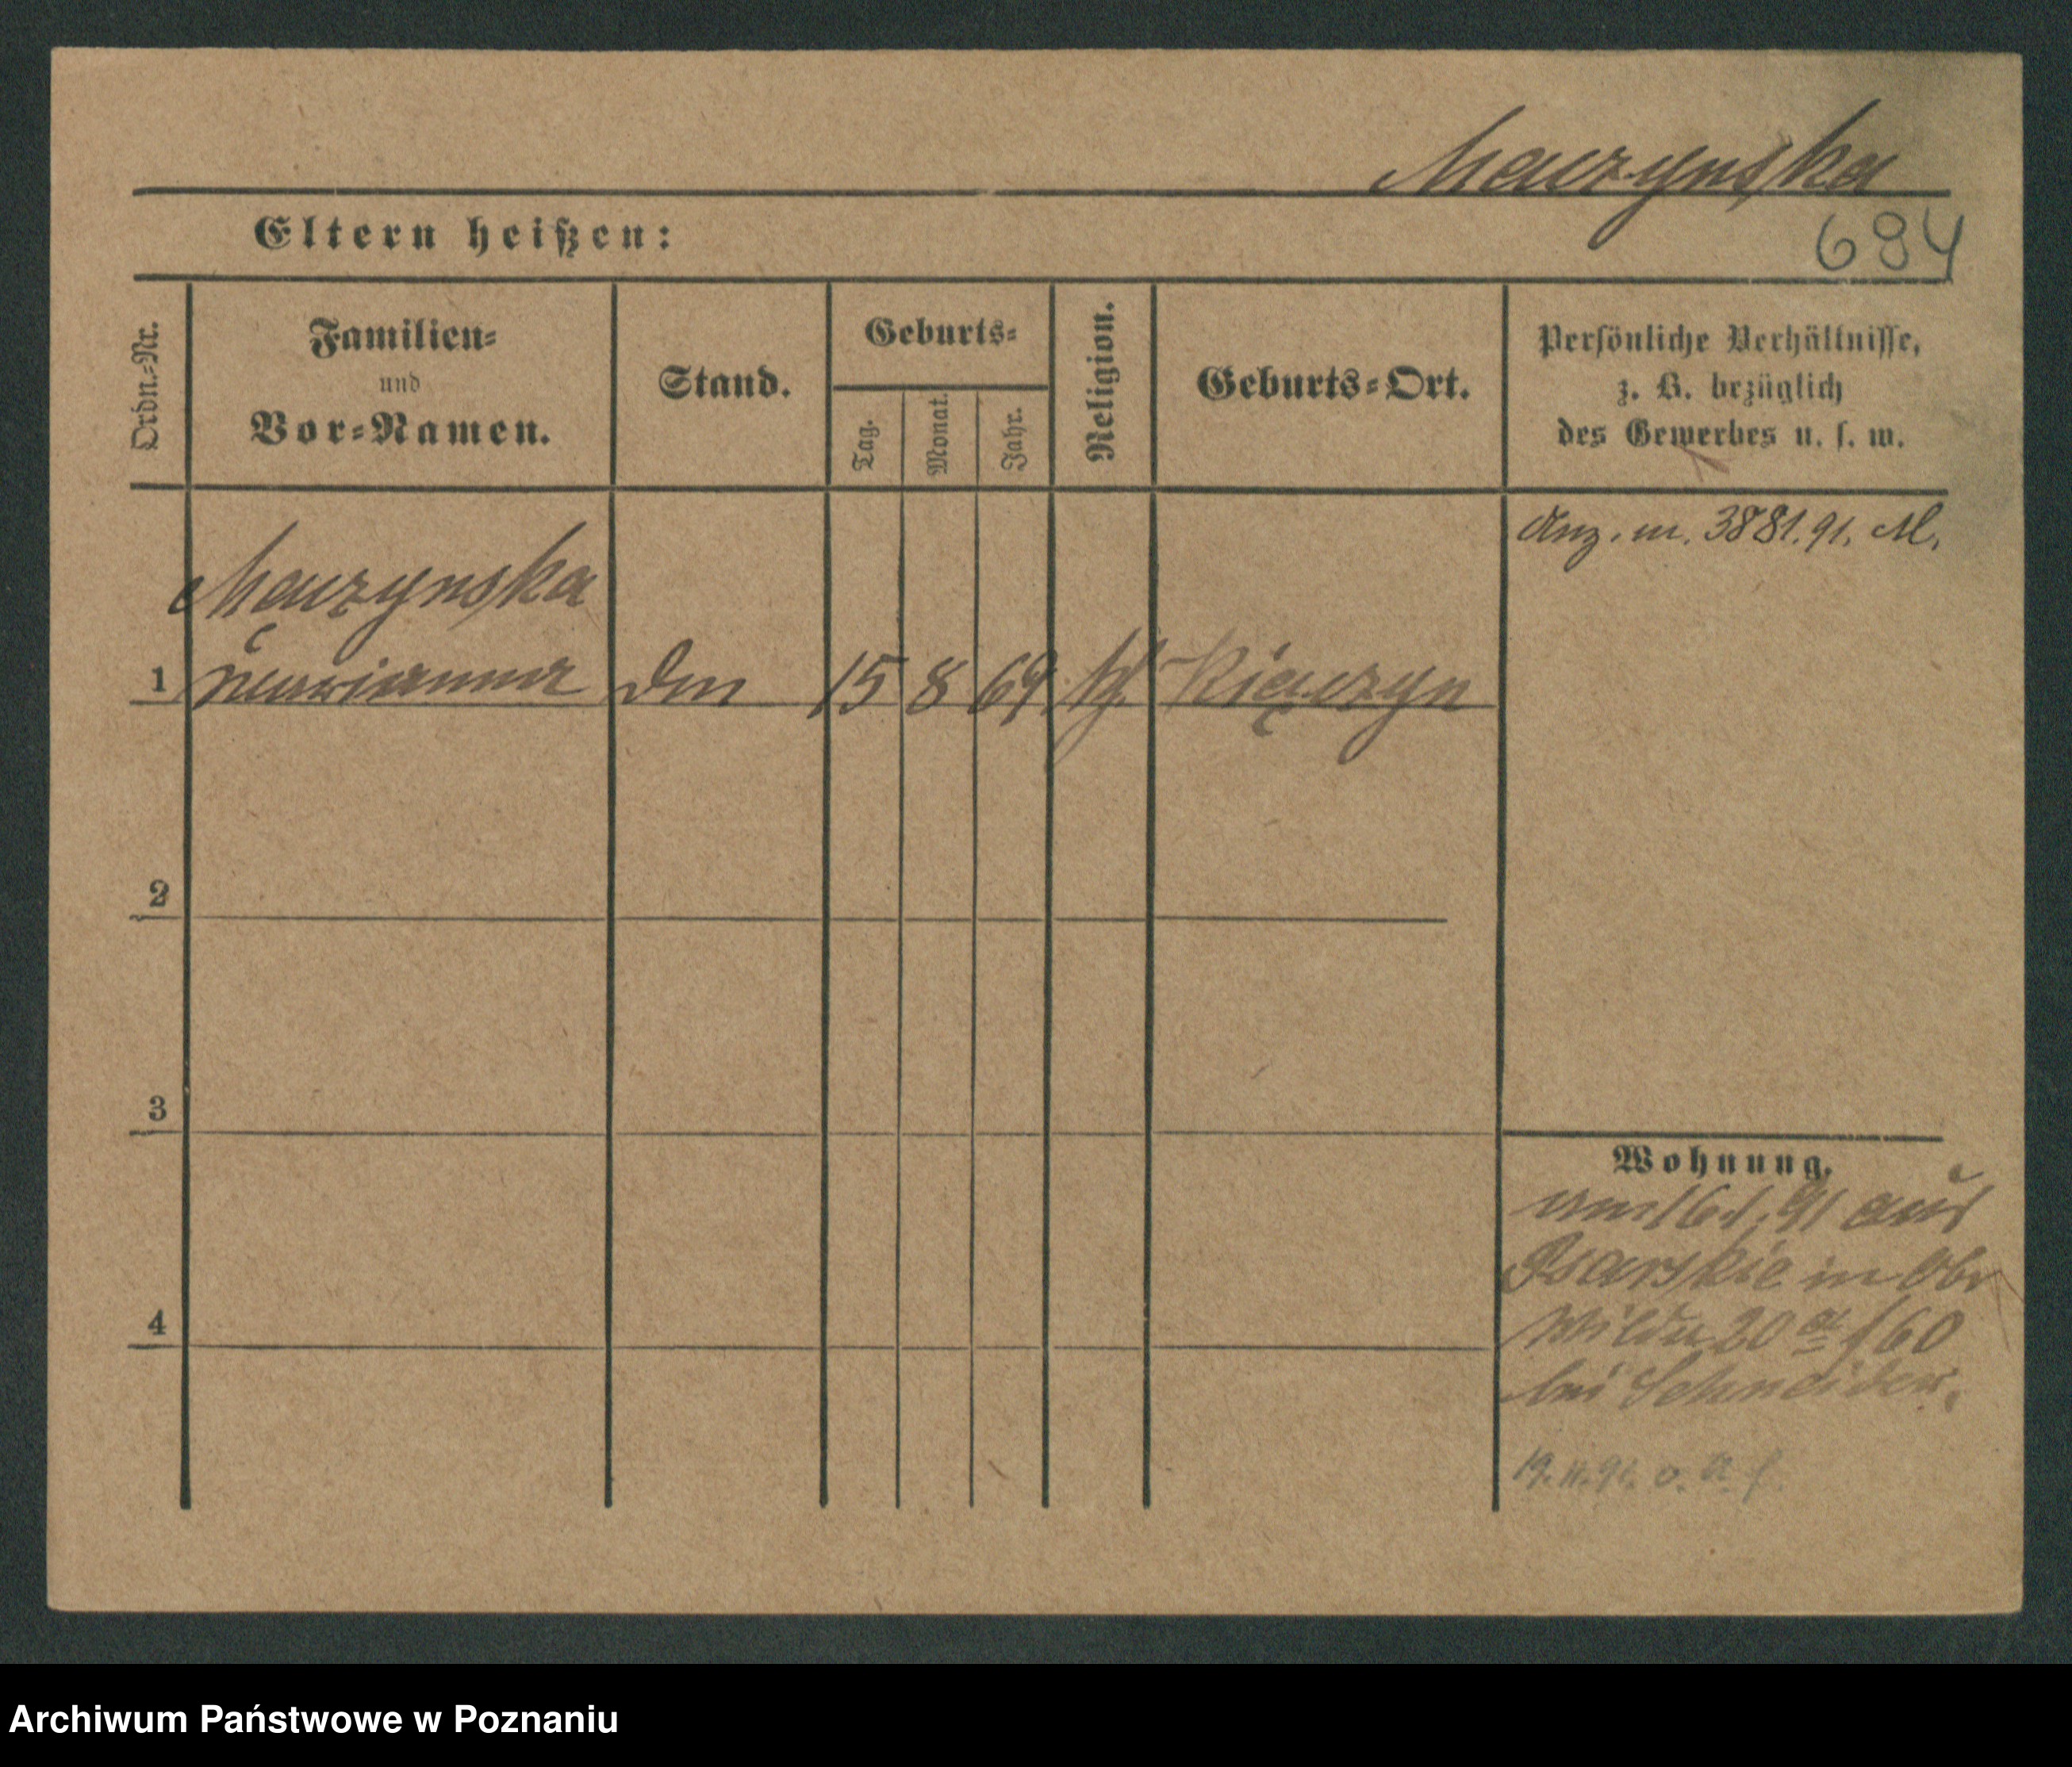 Mączynska
684
Eltern heißen:
Ordn.-Nr.
Familien-
und
Vor-Namen.
Stand.
Geburts-
Tag.
Monat.
Jahr.
Religion.
Geburts-Ort.
Persönliche Verhältnisse,
z. B. bezüglich
des Gewerbes u. s. w.
Anz. m. 3881.91. M.
Mączynska
1 Marianna 15 8 69 Kiączyn
2
3
4
Wohnung.
am 16.1.91 aus
Psarskie in Obr
Wilda 20 a /60
bei Schneider.
Archiwum Państwowe w Poznaniu